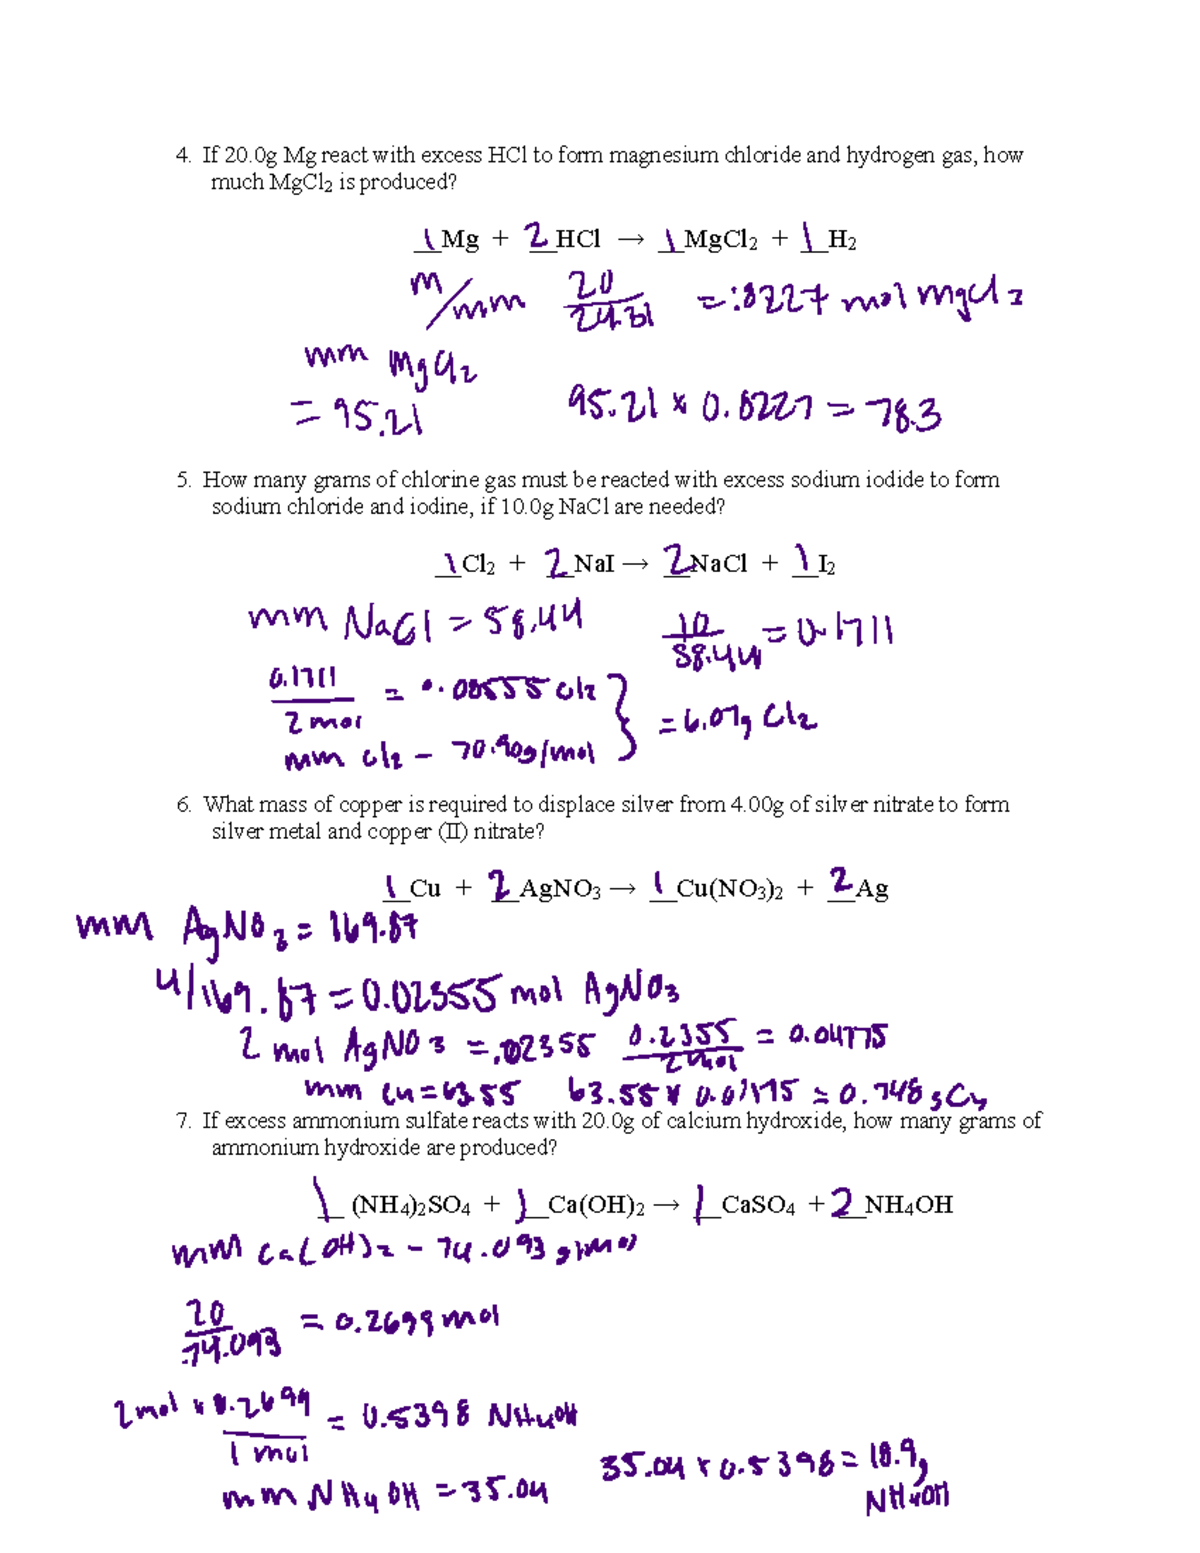 4. If 20.0g Mg react with excess HCl to form magnesium chloride and hydrogen gas, how
much MgCl2 is produced?
1 Mg + 2 HCl → 1 MgCl2 + 1 H2
m/mm 20/24.31 = .8227 mol MgCl2
mm MgCl2
= 95.21 95.21 x 0.8227 = 78.3
5. How many grams of chlorine gas must be reacted with excess sodium iodide to form
sodium chloride and iodine, if 10.0g NaCl are needed?
1 Cl2 + 2 NaI → 2 NaCl + 1 I2
mm NaCl = 58.44 10/58.44 = 0.1711
0.1711/2 mol = 0.08555 Cl2
mm Cl2 - 70.90g/mol } = 6.07g Cl2
6. What mass of copper is required to displace silver from 4.00g of silver nitrate to form
silver metal and copper (II) nitrate?
1 Cu + 2 AgNO3 → 1 Cu(NO3)2 + 2 Ag
mm AgNO3 = 169.87
4/169.87 = 0.02355 mol AgNO3
2 mol AgNO3 = .02355 0.2355/2 mol =
mm Cu = 63.55 63.55 x = 0.748 g Cu
7. If excess ammonium sulfate reacts with 20.0g of calcium hydroxide, how many grams of
ammonium hydroxide are produced?
1 (NH4)2SO4 + 1 Ca(OH)2 → 1 CaSO4 + 2 NH4OH
mm Ca(OH)2 - 74.093 g/mol
20/74.093 = 0.2699 mol
2 mol x 0.2699/1 mol = 0.5398 NH4OH
mm NH4OH = 35.04 35.04 x 0.5398 = 18.9g
NH4OH